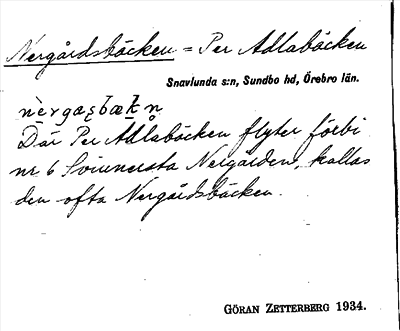 Nergårdsbäcken = Per Adlabäcken
Snavlunda s:n, Sundbo hd, Örebro län.
Där Per Adlabäcken flyter förbi
nr 6 Nergården, kallas
den ofta Nergårdsbäcken.
GÖRAN ZETTERBERG 1934.